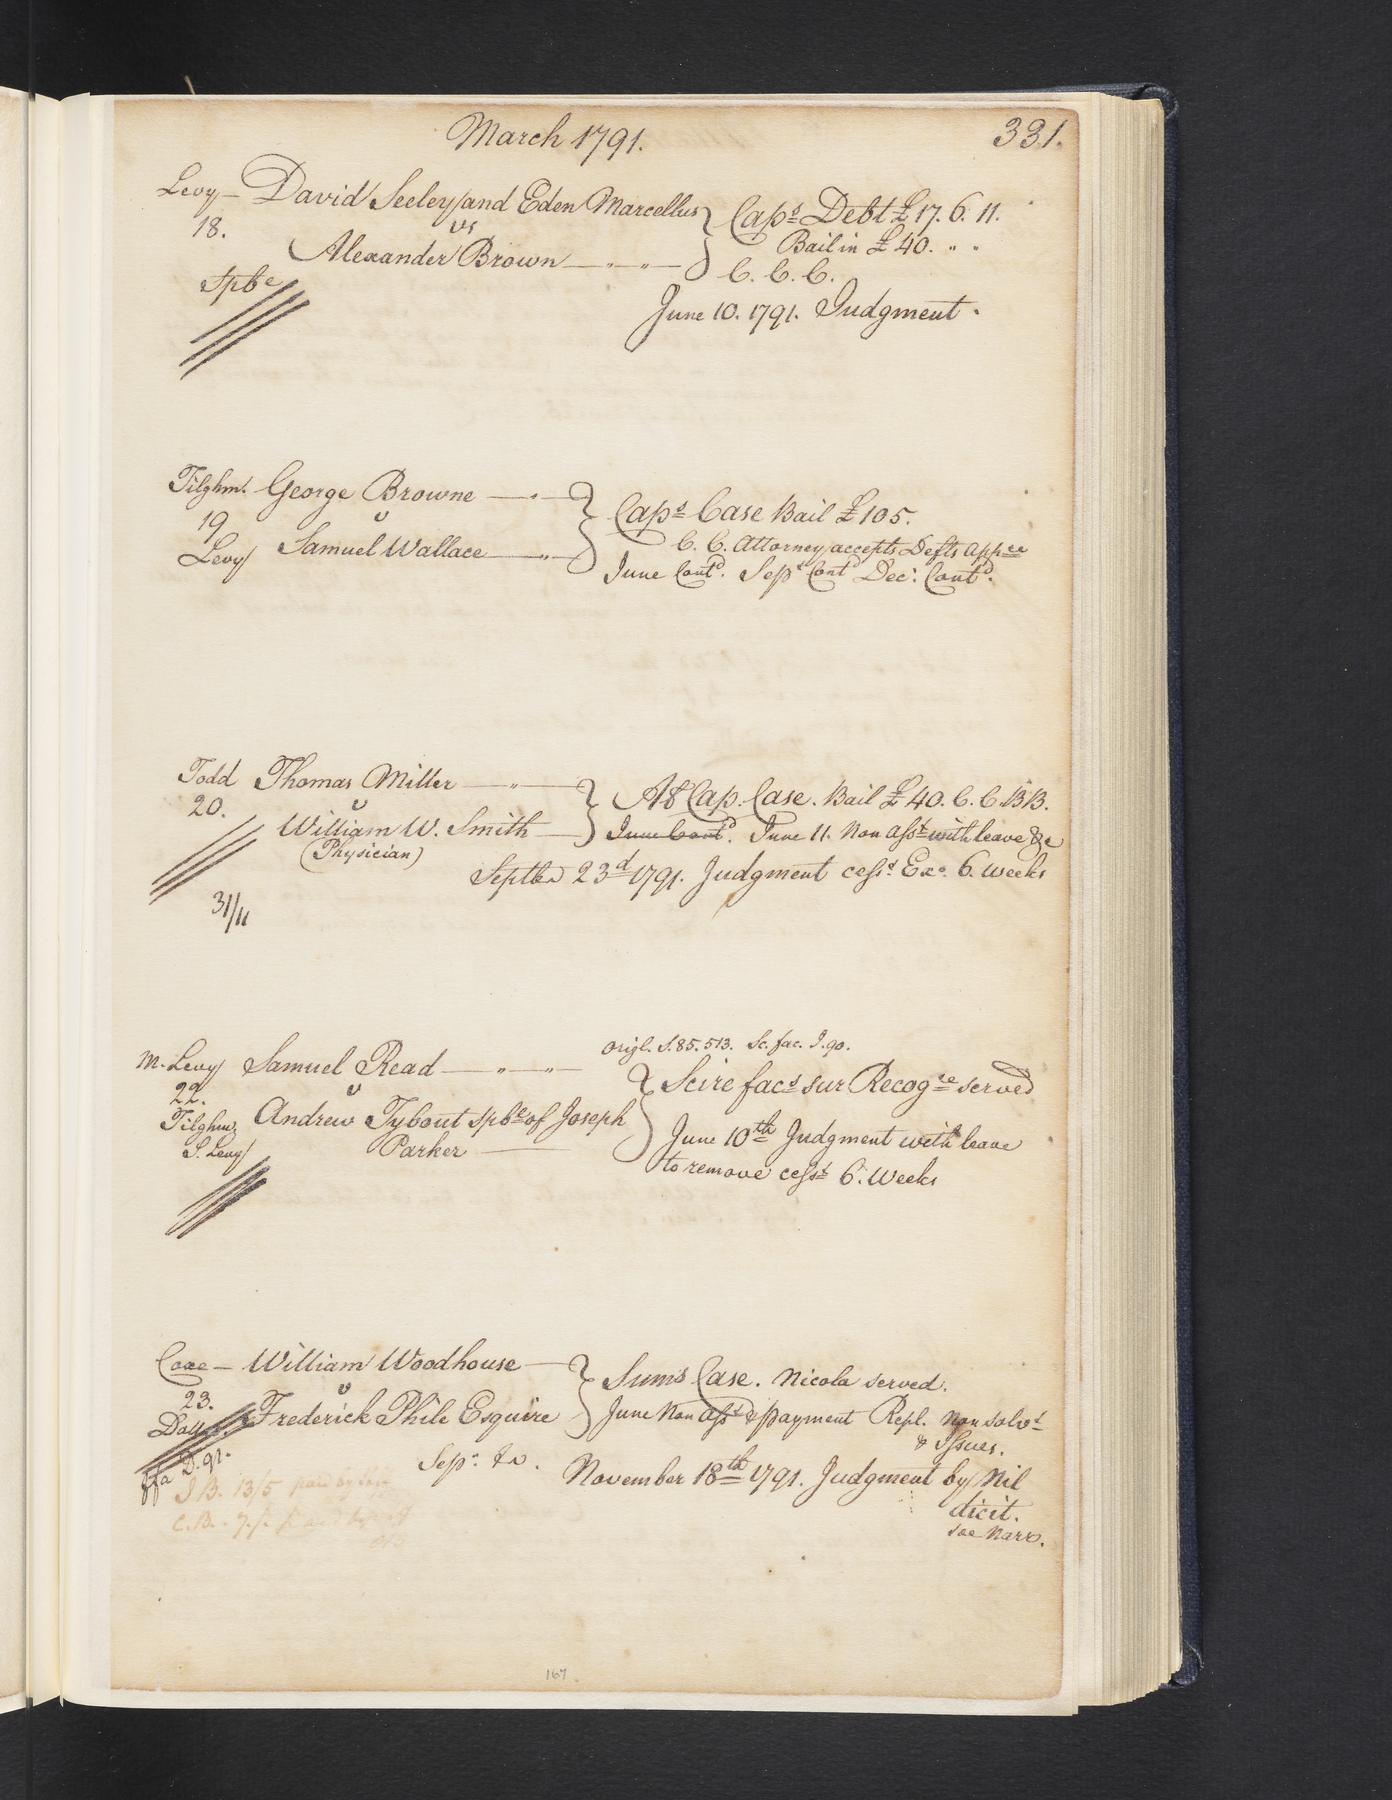 March 1791.
331.
Levy - David Seeley and Eden Marcellus
18.
vs
Alexander Brown
Caps Debt £17. 6. 11.
Bail in £40. " "
C. C. C.
Spbe
June 10. 1791. Judgment.
Tilghm. George Browne
19
v
Levy Samuel Wallace
Caps Case Bail £105.
C. C. Attorney accepts Defts appce
June Contd. Sepr Contd Decr. Contd.
Todd Thomas Miller
20.
v
William W. Smith
(Physician)
As Cap. Case. Bail £40. C. C. BB.
June Contd. June 11. Non Asst with leave &c
Septbr 23d 1791. Judgment cesst. Exo. 6. weeks
31/11
Origl. S. 85. 513. Sc. fac. J. 90.
M. Levy Samuel Read
22.
v
Tilghm. Andrew Tybout spbe of Joseph
S. Levy Parker
Scire facs sur Recogce served
June 10th Judgment with leave
to remove cesst 6. Weeks
Coxe - William Woodhouse
23.
v
Frederick Phile Esquire
Sums Case. Nicola served.
June Non Asst & payment Repl. non solvt
& Issues.
Sepr.
ffa D. 91.
November 18th 1791. Judgment by Nil
dicit.
see Narr.
J B. 13/5 paid by
C. B.
167